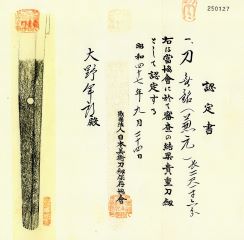 250127
認定書
一、刀 無銘(兼元)長二尺
右は当協會に於て審査の結果貴重刀剣
として認定する
昭和四十七年九月二十四日
財團法人日本美術刀剣保存協會
大野
殿